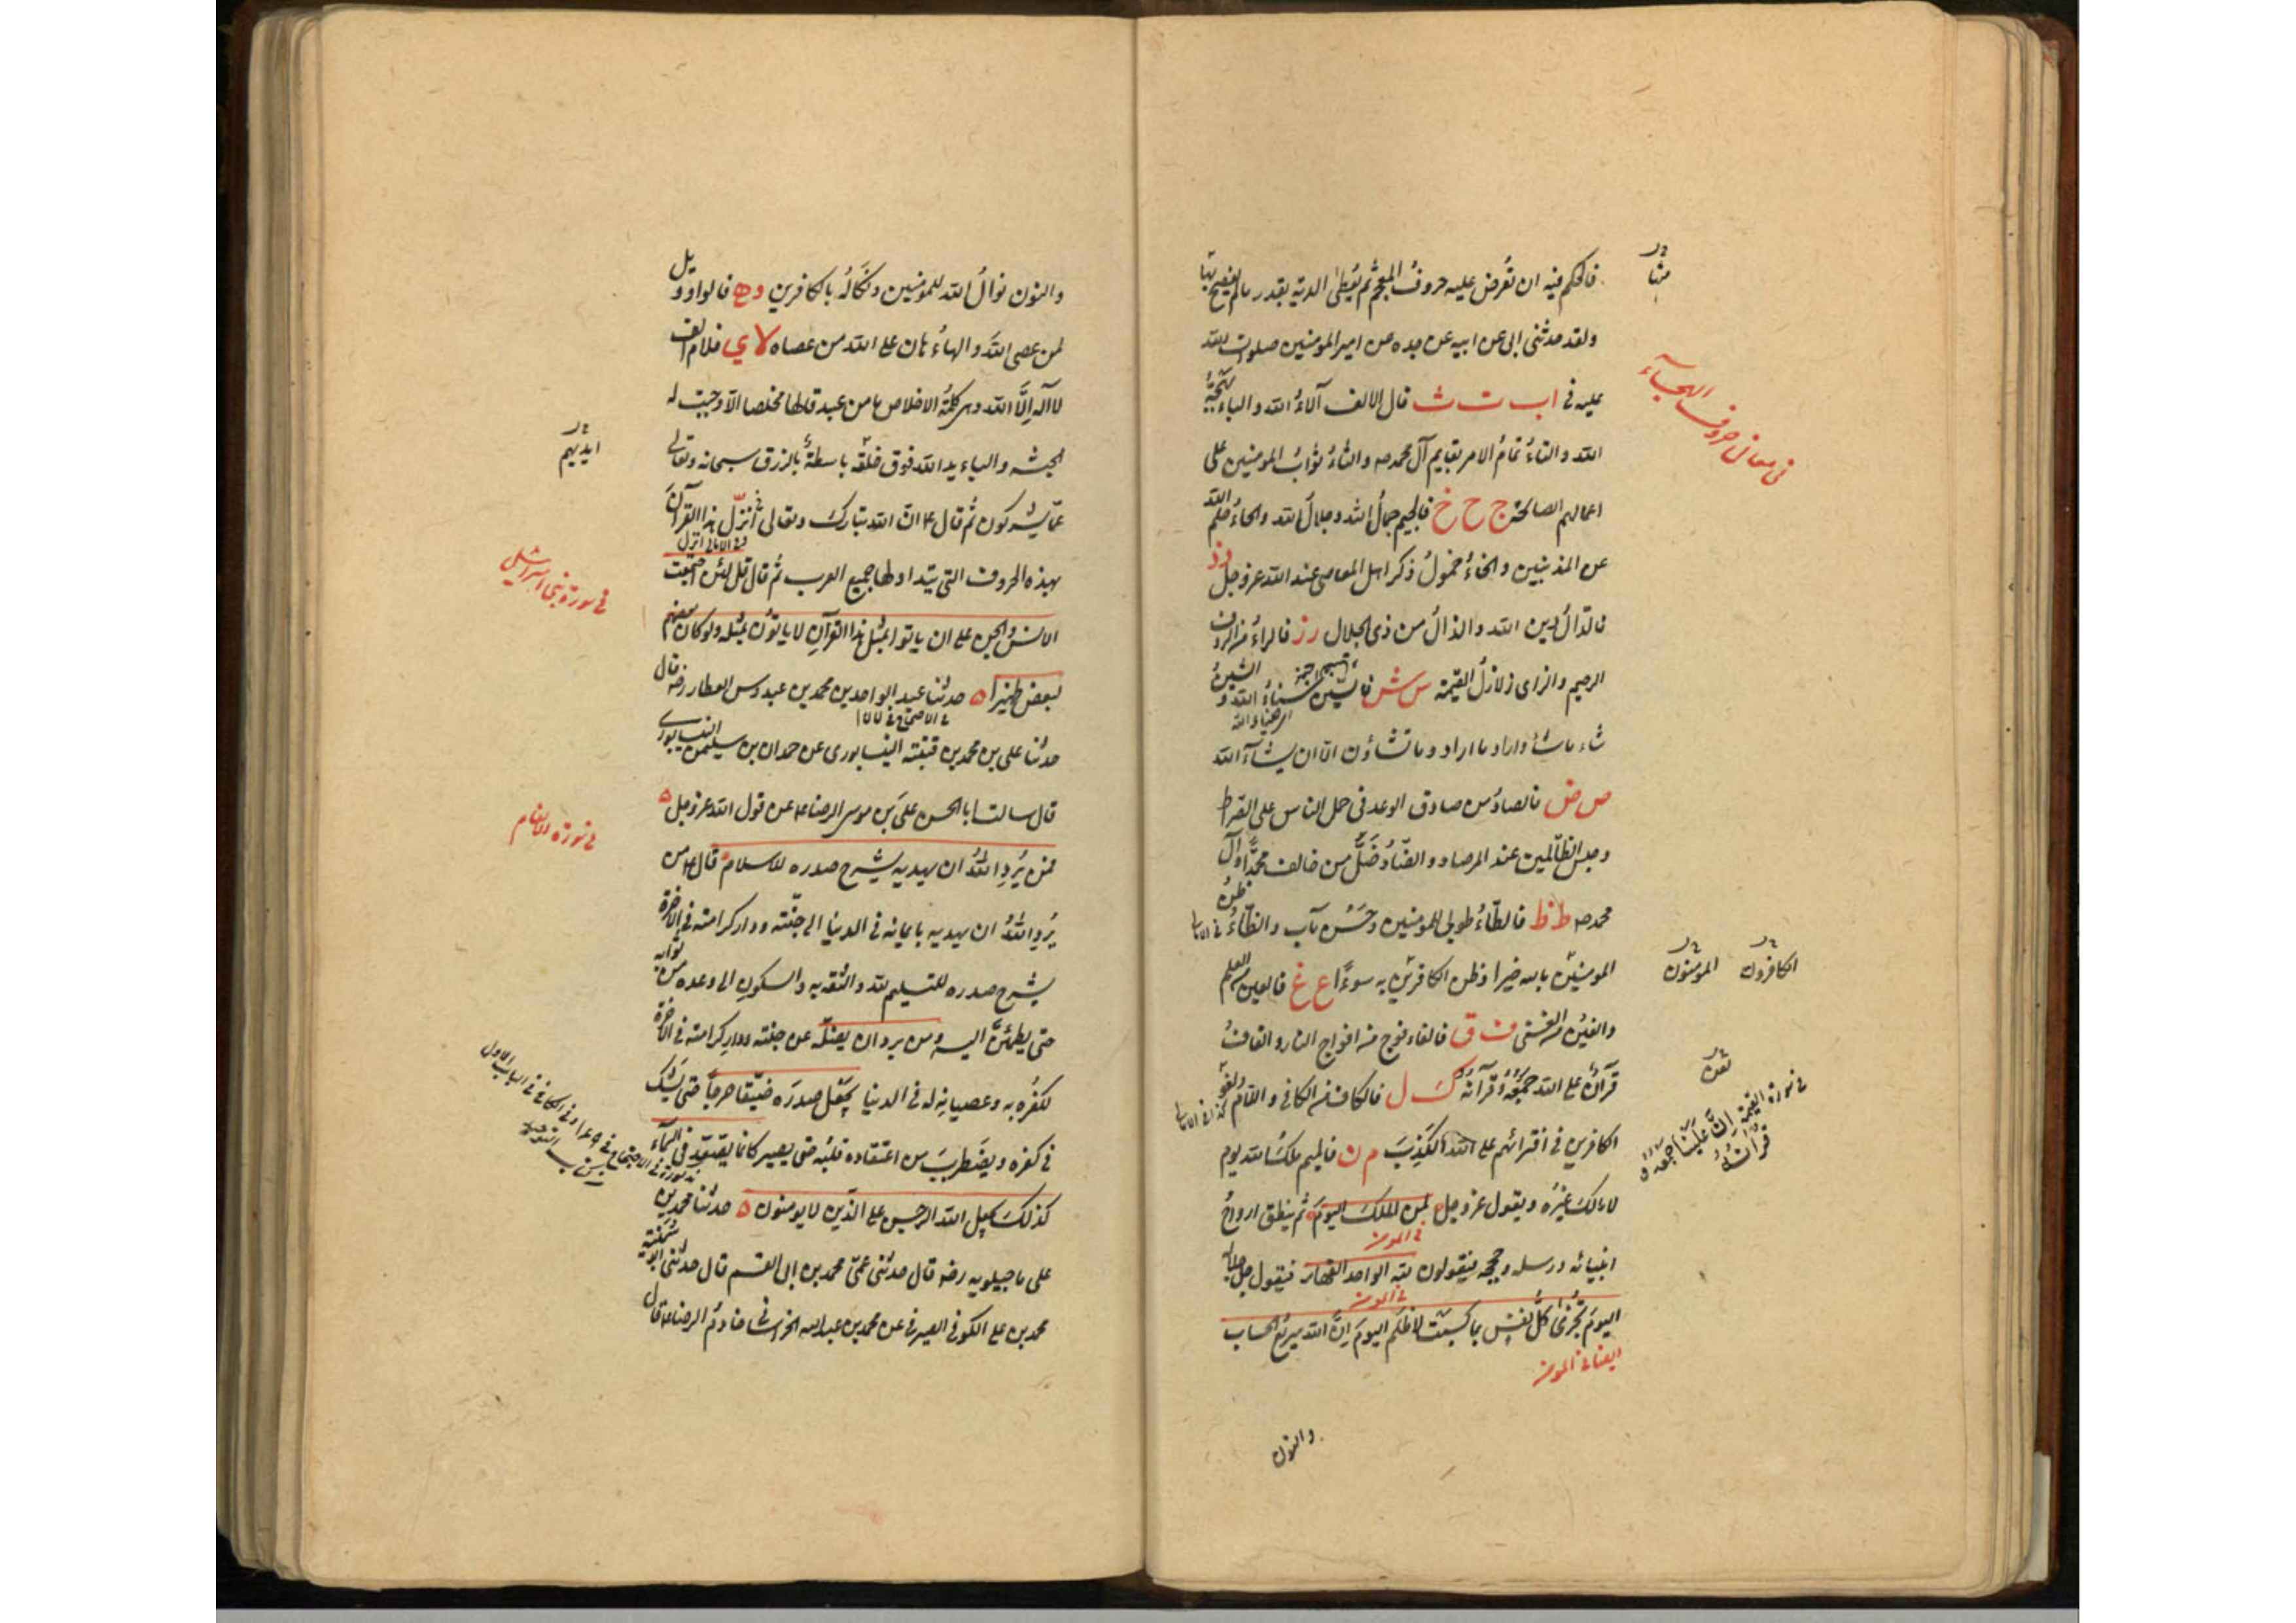 فالحكم فيه ان تُعرض عليه حروفُ المعجم ثم يُعطىٰ الدية بقدر ما لم يفصح بها
ولقد حدثنى ابى عن ابيه عن جده عن امير المؤمنين صلوات الله
عليه فى ا ب ت ث قال الالف آلاءُ الله والباء بهجةُ
الله والتاءُ تمامُ الامر بقايم آل محمد صه والثاءُ ثوابُ المؤمنين على
اعمالهم الصالحة ج ح خ فالجيم جمالُ الله وجلالُ الله والحاءُ حلم الله
عن المذنبين والخاءُ خمولُ ذكر اهل المعاصى عند الله عز وجل د ذ
فالدالُ دين الله والذالُ من ذى الجلال ر ز فالراءُ من الروف
الرحيم والزاى زلازلُ القيمة س ش فالسين سناءُ الله والشينُ
شاء ما شاءَ واراد ما اراد وما تشاؤن الّا ان يشآءَ الله
ص ض فالصادُ من صادق الوعد فى حمل الناس على الصراط
وحبس الظالمين عند المرصاد والضّادُ ضَلَّ من خالف محمدًا وآل
محمد صه ط ظ فالطّاءُ طوبى للمومنين وحسنُ مآب والظّاءُ ظنُ
المومنين بالله خيرا وظن الكافرين به سوءًا ع غ فالعين من العلم
والغين من الغنى ف ق فالفاء فوج من افواج النار والقافُ
قرآنٌ على الله جمعُهُ وقرآنُهُ ك ل فالكاف من الكافى واللام لغو
الكافرين فى افترائهم على الله الكَذِبَ م ن فالميم ملكُ الله يوم
لا مالكَ غيرُه ويقول عز وجل لمن الملك اليومَ ثم ينطق ارواحُ
فى المومن
انبيائه ورسله وحججه فيقولون لله الواحد القهار فيقول جل جلاله
فى المومن
اليومَ تُجزىٰ كلُّ نفسٍ بما كسبت لا ظلمَ اليومَ اِنَّ الله سريعُ الحساب
ايضا فى المومن
والنون
منها
فى معانى حروف الهجاء
الكافرون
المومنون
فى سورة القيمة اِنَّ عَلَيْنَا جمعه و
قرآنَهُ
والنون نوالُ الله للمومنين ونكالُه بالكافرين و ه فالواو ويل
لمن عصى اللهَ والهاءُ هان على الله من عصاه لا ي فلام الف
لا اله اِلَّا الله وهى كلمةُ الاخلاص ما من عبد قالها مخلصا الّا وجبت له
الجنة والياء يد الله فوق خلقه باسطةٌ بالرزق سبحانه وتعالى
عمّا يشركون ثم قال ع انّ الله تبارك وتعالى انزل هذا القرآنَ
وفى الامالى انزل
بهذه الحروف التى يتداولها جميع العرب ثم قال قل لئن اجتمعت
الانسُ والجن على ان ياتوا بمثل هذا القرآنِ لا ياتونَ بمثله ولو كان بعضهم
لبعض ظهيرا حدثنا عبد الواحد بن محمد بن عبدوس العطار رضه قال
حدثنا على بن محمد بن قتيبة النيسابورى عن حمدان بن سليمن النيسابورى
قال سالت ابا الحسن على بن موسى الرضا ع عن قول الله عز وجل
فمن يُرِدِ اللهُ ان يهديه يشرح صدره للاسلام قال ع من
يُرِدِ اللهُ ان يهديه بايمانه فى الدنيا الى جنّته ودار كرامته فى الآخرة
يشرح صدره للتسليم لله والثقة به والسكونِ الى وعده من ثوابه
حتى يطمئنَّ اليه ومن يرد ان يضلّه عن جنته ودارِ كرامته فى الآخرة
لكفرِه به وعصيانِه له فى الدنيا يجعل صدرَه ضيّقا حرجاً حتى يشك
فى كفره ويضطربَ من اعتقاده قلبُه حتى يصير كانما يصّعّد فى السماء
كذلكَ يجعل الله الرجس على الذين لا يومنون حدثنا محمد بن
على ماجيلويه رضه قال حدثنى عمّى محمد بن ابى القسم قال حدثنى ابو سمينة
محمد بن على الكوفى الصيرفى عن محمد بن عبد الله الخراسانى خادمُ الرضا ع قال
ايديهم
فى سورة بنى اسرائيل
فى سورة الانعام